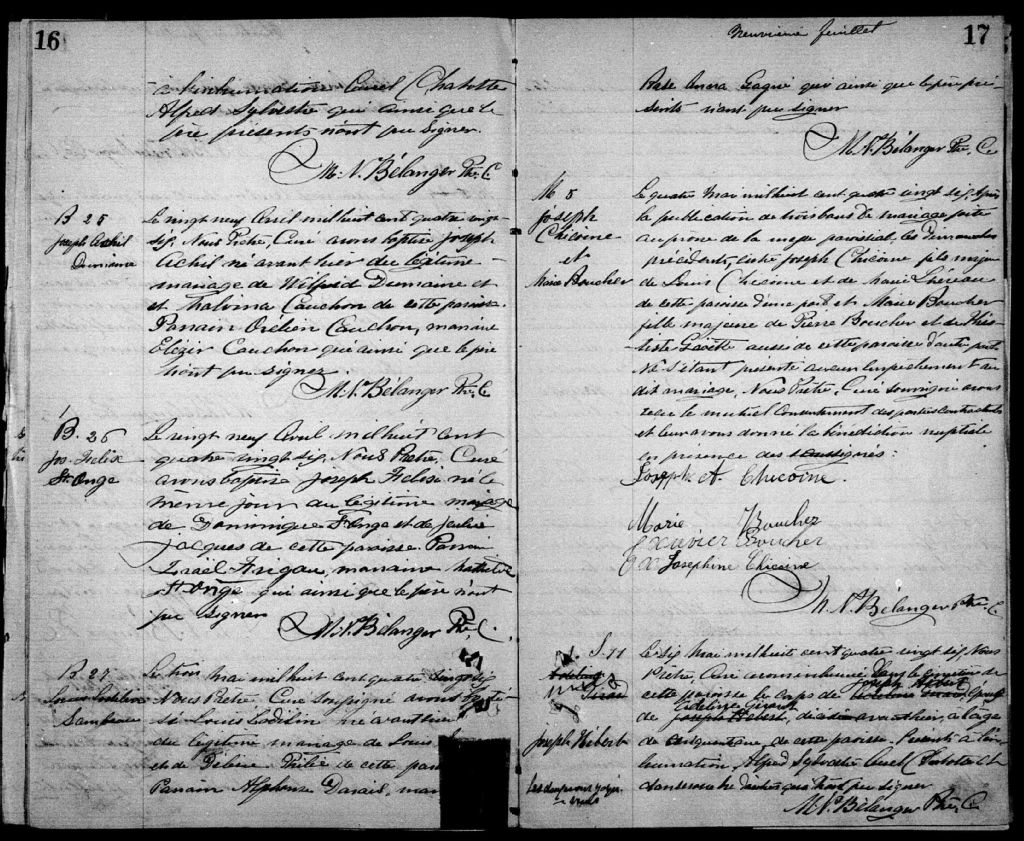 16
à l'inhumation Aurel Chatotte
Alfred Sylvestre qui ainsi que le
père présents n'ont pu signer.
M. N. Bélanger Ptre. C
B 25
Joseph Achil
Dumaine
Le vingt neuf Avril mil huit cent quatre vingt
six, Nous Prêtre, Curé avons baptisé Joseph
Achil né avant hier du légitime
mariage de Wilfrid Dumaine et
et Malvina Cauchon de cette paroisse.
Parrain Orélien Cauchon, marraine
Elezir Cauchon qui ainsi que le père
n'ont pu signer.
M. N. Bélanger Ptre C
B. 26
Jos. Felix
St. Onge
Le vingt neuf Avril mil huit cent
quatre vingt six, Nous Prêtre, Curé
avons baptisé Joseph Felix né le
même jour du légitime mariage
de Dominique St. Onge et de Julie
Jacques de cette paroisse. Parrain
Israël marraine
St. Onge qui ainsi que le père n'ont
pu signer
M. N. Bélanger Ptre, C.
B. 27
Louis
Le trois Mai mil huit cent quatre vingt six
Nous Prêtre, Curé soussigné avons bapti-
sé Louis né avant hier
du légitime mariage de Louis
et de de cette
Parrain Alphonse
Neuvième feuillet
17
Rose Anna Gagné qui ainsi que le père pré-
sents n'ont pu signer
M. N. Bélanger Ptre. C
M 5
Joseph
Chicoine
et
Marie Boucher
Le quatre Mai mil huit cent quatre vingt six, Après
la publication de trois bans de mariage faite
au prône de la messe paroissial, les Dimanches
précédents, entre Joseph Chicoine fils majeur
de Louis Chicoine et de Marie
de cette paroisse d'une part, et Marie Boucher
fille majeure de Pierre Boucher et de
aussi de cette paroisse d'autre part.
Ne s'étant présenté aucun empêchement au
dit mariage, Nous Prêtre, Curé soussigné avons
reçu le mutuel consentement des parties contractantes
et leur avons donné la bénédiction nuptiale
en présence des soussignés:
Joseph A. Chicoine.
Marie Boucher
Xavier Boucher
Josephine Chicoine
M. N. Bélanger Ptre. C.
S. 11
Joseph Hébert
Le six Mai mil huit cent quatre vingt six, Nous
Prêtre, Curé avons inhumé dans le cimetière de
Joseph Hébert
cette paroisse le corps de Epouse
Gérard
de Joseph Hébert, décédé avant hier, à l'âge
de cinquante de cette paroisse. Présents à l'in-
humation, Alfred Sylvestre Aurel Chatotte et
d'autres qui n'ont pu signer
M. N. Bélanger Ptre. C